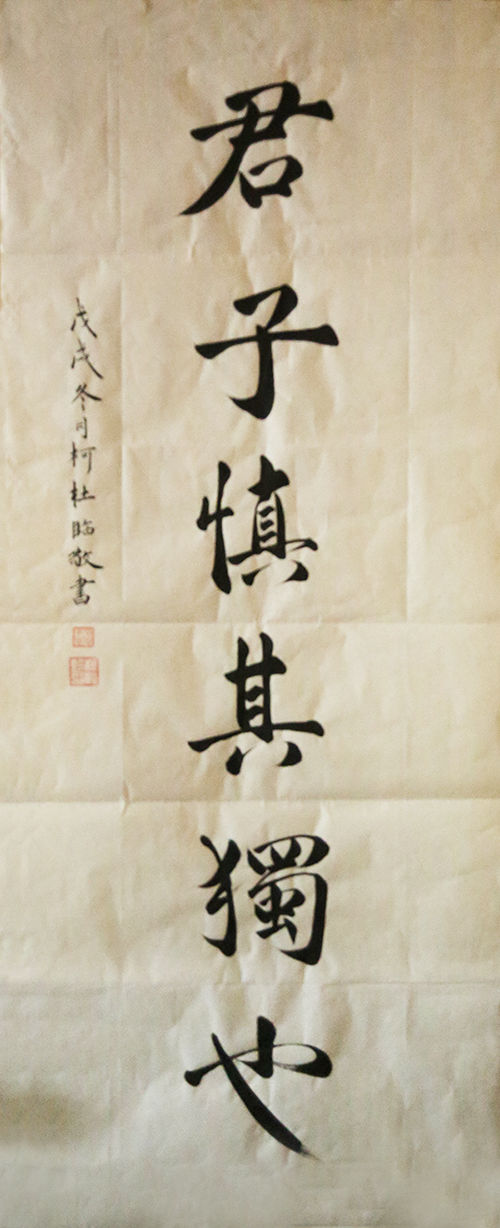 君子慎其獨也
戊戌冬月柯杜臨敬書